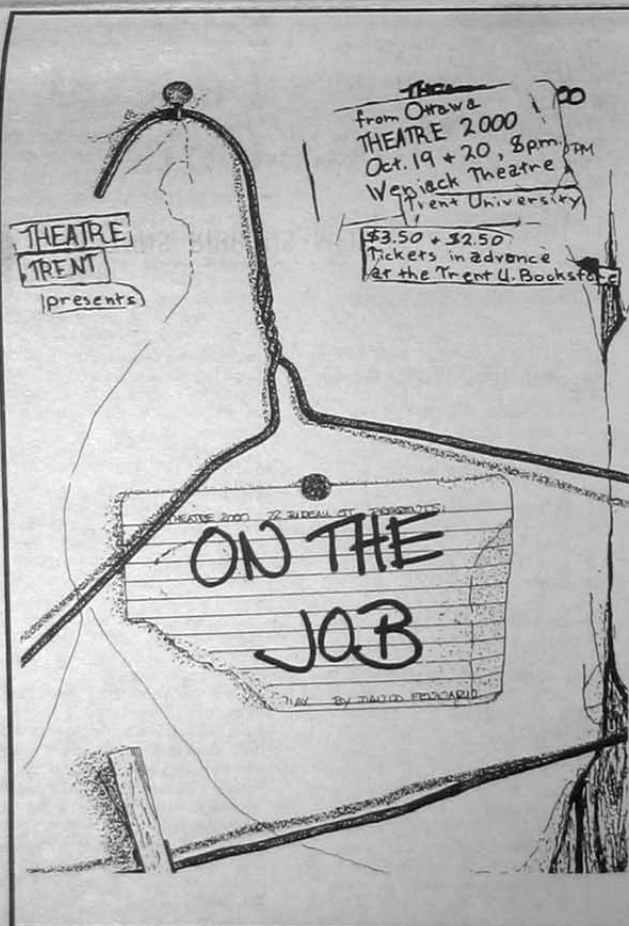 THEATRE
TRENT
presents
from Ottawa
THEATRE 2000
Oct. 19 + 20, 8 p.m.
Wenjack Theatre
Trent University
$3.50 + $2.50
Tickets in advance
at the Trent U. Bookstore
THEATRE 2000
ON THE
JOB
BY DAVID FENNARIO